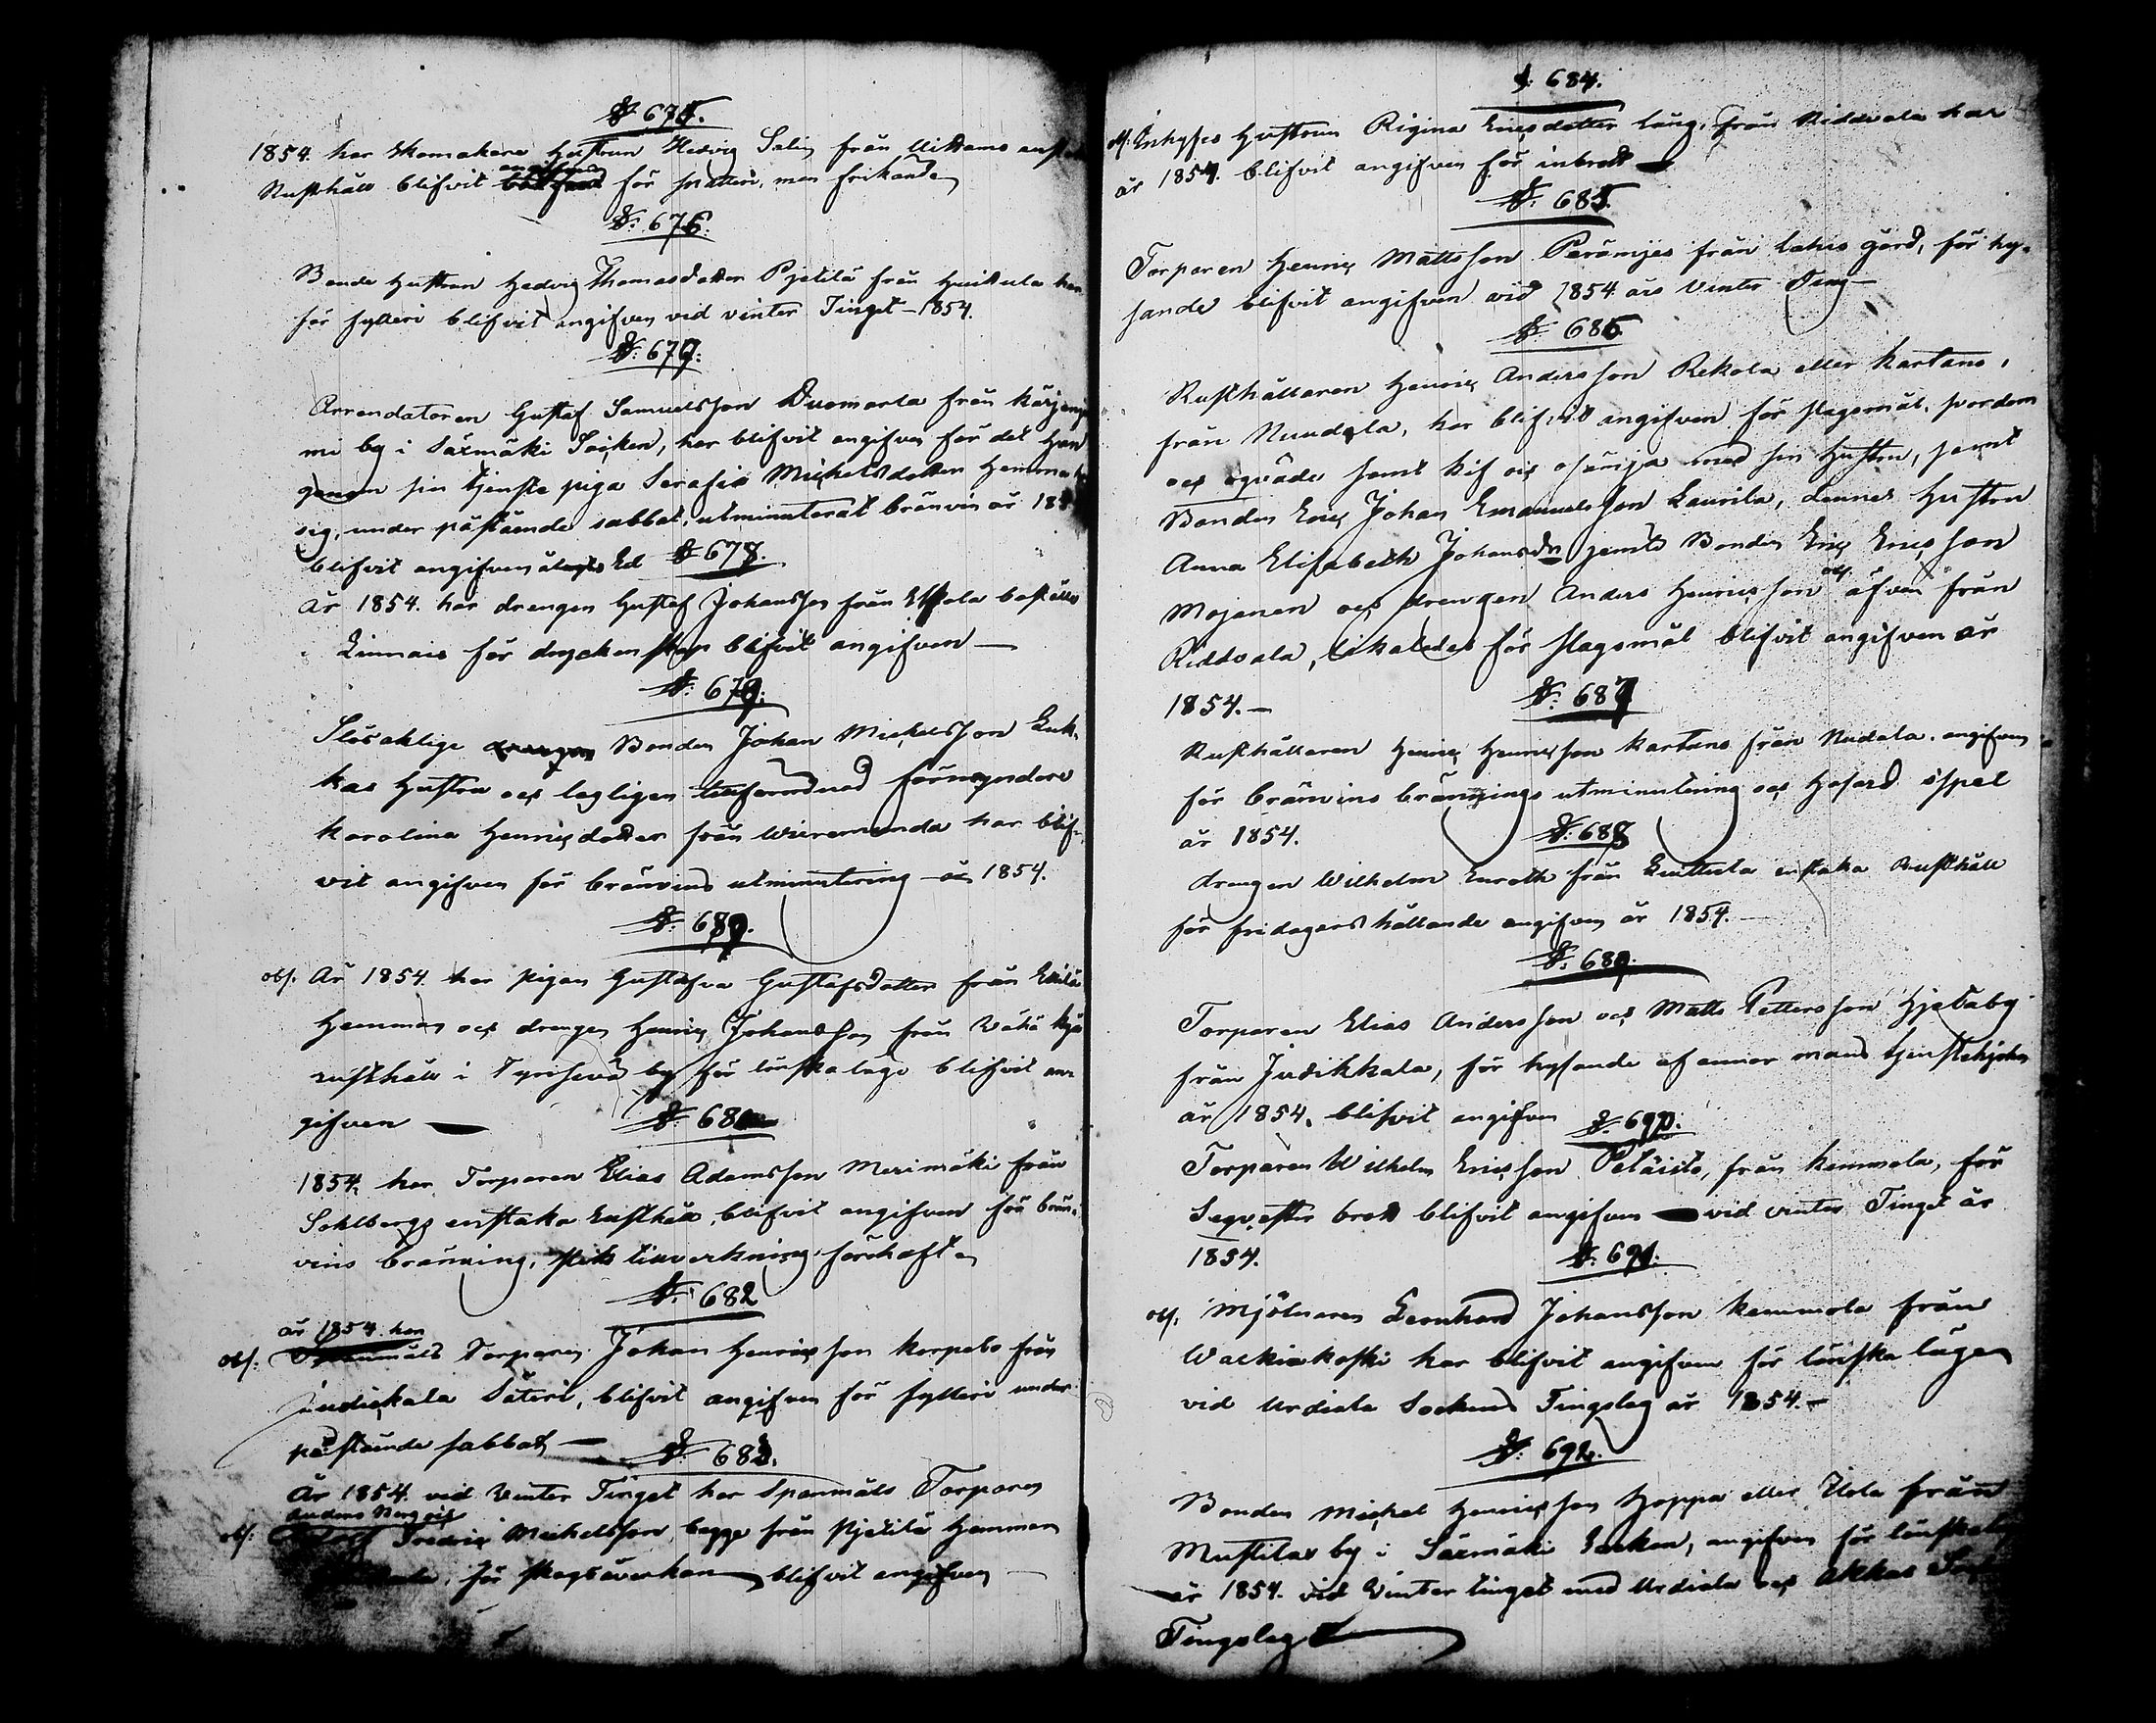 § 675.
1854. har Skomakare Hustrun Hedvig Salin från Uittamo
Rusthåll blifvit angifven för fylleri, men frikänd
§: 676.
Bonde Hustrun Hedvig Thomasdotter Pjetilä från Huittula har
för fylleri blifvit angifven vid vinter Tinget – 1854.
§: 677.
Arrendatoren Gustaf Samuelsson Duomarla från
mi by i Säxmäki Socken, har blifvit angifven för det han
genom sin tjenste piga Serafia Michelsdotter Hemma hos
sig, under påstående sabbat, utminuterat bränvin år
blifvit angifven § 678.
År 1854. har drengen Gustaf Johansson från
för dryckenskap blifvit angifven –
§: 679.
Bonden Johan Michelsson
kas Hustru och lagligen förmyndare
Karolina Henricsdotter från har blif-
vit angifven för bränvins utminutering år 1854.
§: 680.
obs. År 1854 har pigan Gustafva Gustafsdotter från
Hemman och drengen Henric Johansson från
rusthåll i by för lönskaläge blifvit an-
gifven –
§: 681
1854. har Torparen Elias Adamsson Merimäki från
Sohlbergs enstaka Rusthåll, blifvit angifven för brän-
vins bränning,
§: 682
år 1854 har
obs: Torparen Johan Henricsson Korpebo från
Judickala Säteri, blifvit angifven för fylleri under
påstående sabbat – § 683.
År 1854. vid Vinter Tinget har Spanmåls Torparen
Anders Berg och
obs: Fredric Michelsson, begge från Pjetilä Hemman
för skogsåverkan blifvit angifven –
§. 684.
Inhyses Hustrun Regina Ericsdotter Lång, från Riddvala har
år 1854. blifvit angifven för inbrott –
§: 685.
Torparen Henric Mattsson Perämijes från Lahis gård, för hy-
sande blifvit angifven vid 1854 års Vinter Ting –
§: 686
Rusthållaren Henric Andersson Rekola eller Kartano,
från Nuudola, har blifvit angifven för slagsmål,
och oqväde samt kif och osämja med sin Hustru, samt
Bonden Eric Johan Emanuelsson Laurila, dennes Hustru
Anna Elisabeth Johansdr jemte Bonden Eric Ericsson
Mojanen och drengen Anders Henricsson äfven från
Riddvala, likaledes för slagsmål blifvit angifven år
1854. –
§: 687
Rusthållaren Henric Henricsson Kartano från Nudala. angifven
för bränvins bränning utminutering och Hasard spel
år 1854.
§: 688
drengen Wilhelm Enroth från enstaka Rusthåll
för fridagars hållande angifven år 1854. –
§: 689.
Torparen Elias Andersson och Matts Pettersson Hjetaby
från Judikkala, för hysande af annor mans tjenstehjon
år 1854. blifvit angifven §: 690.
Torparen Wilhelm Ericsson Petäistö, från Kemmola, för
Seqvester brott blifvit angifven – vid vinter Tinget år
1854.
§: 691.
obs. Mjölnaren Leonhard Johansson Kemmola från
Walkiakoski har blifvit angifven för lönska läge
vid Urdiala Sockens Tingslag år 1854. –
§: 692.
Bonden Michel Henricsson Hoppa eller från
Mustila by i Säxmäki Socken, angifven för lönskaläge
år 1854. vid Vinter tinget med Urdiala och Akkas
Tingslag